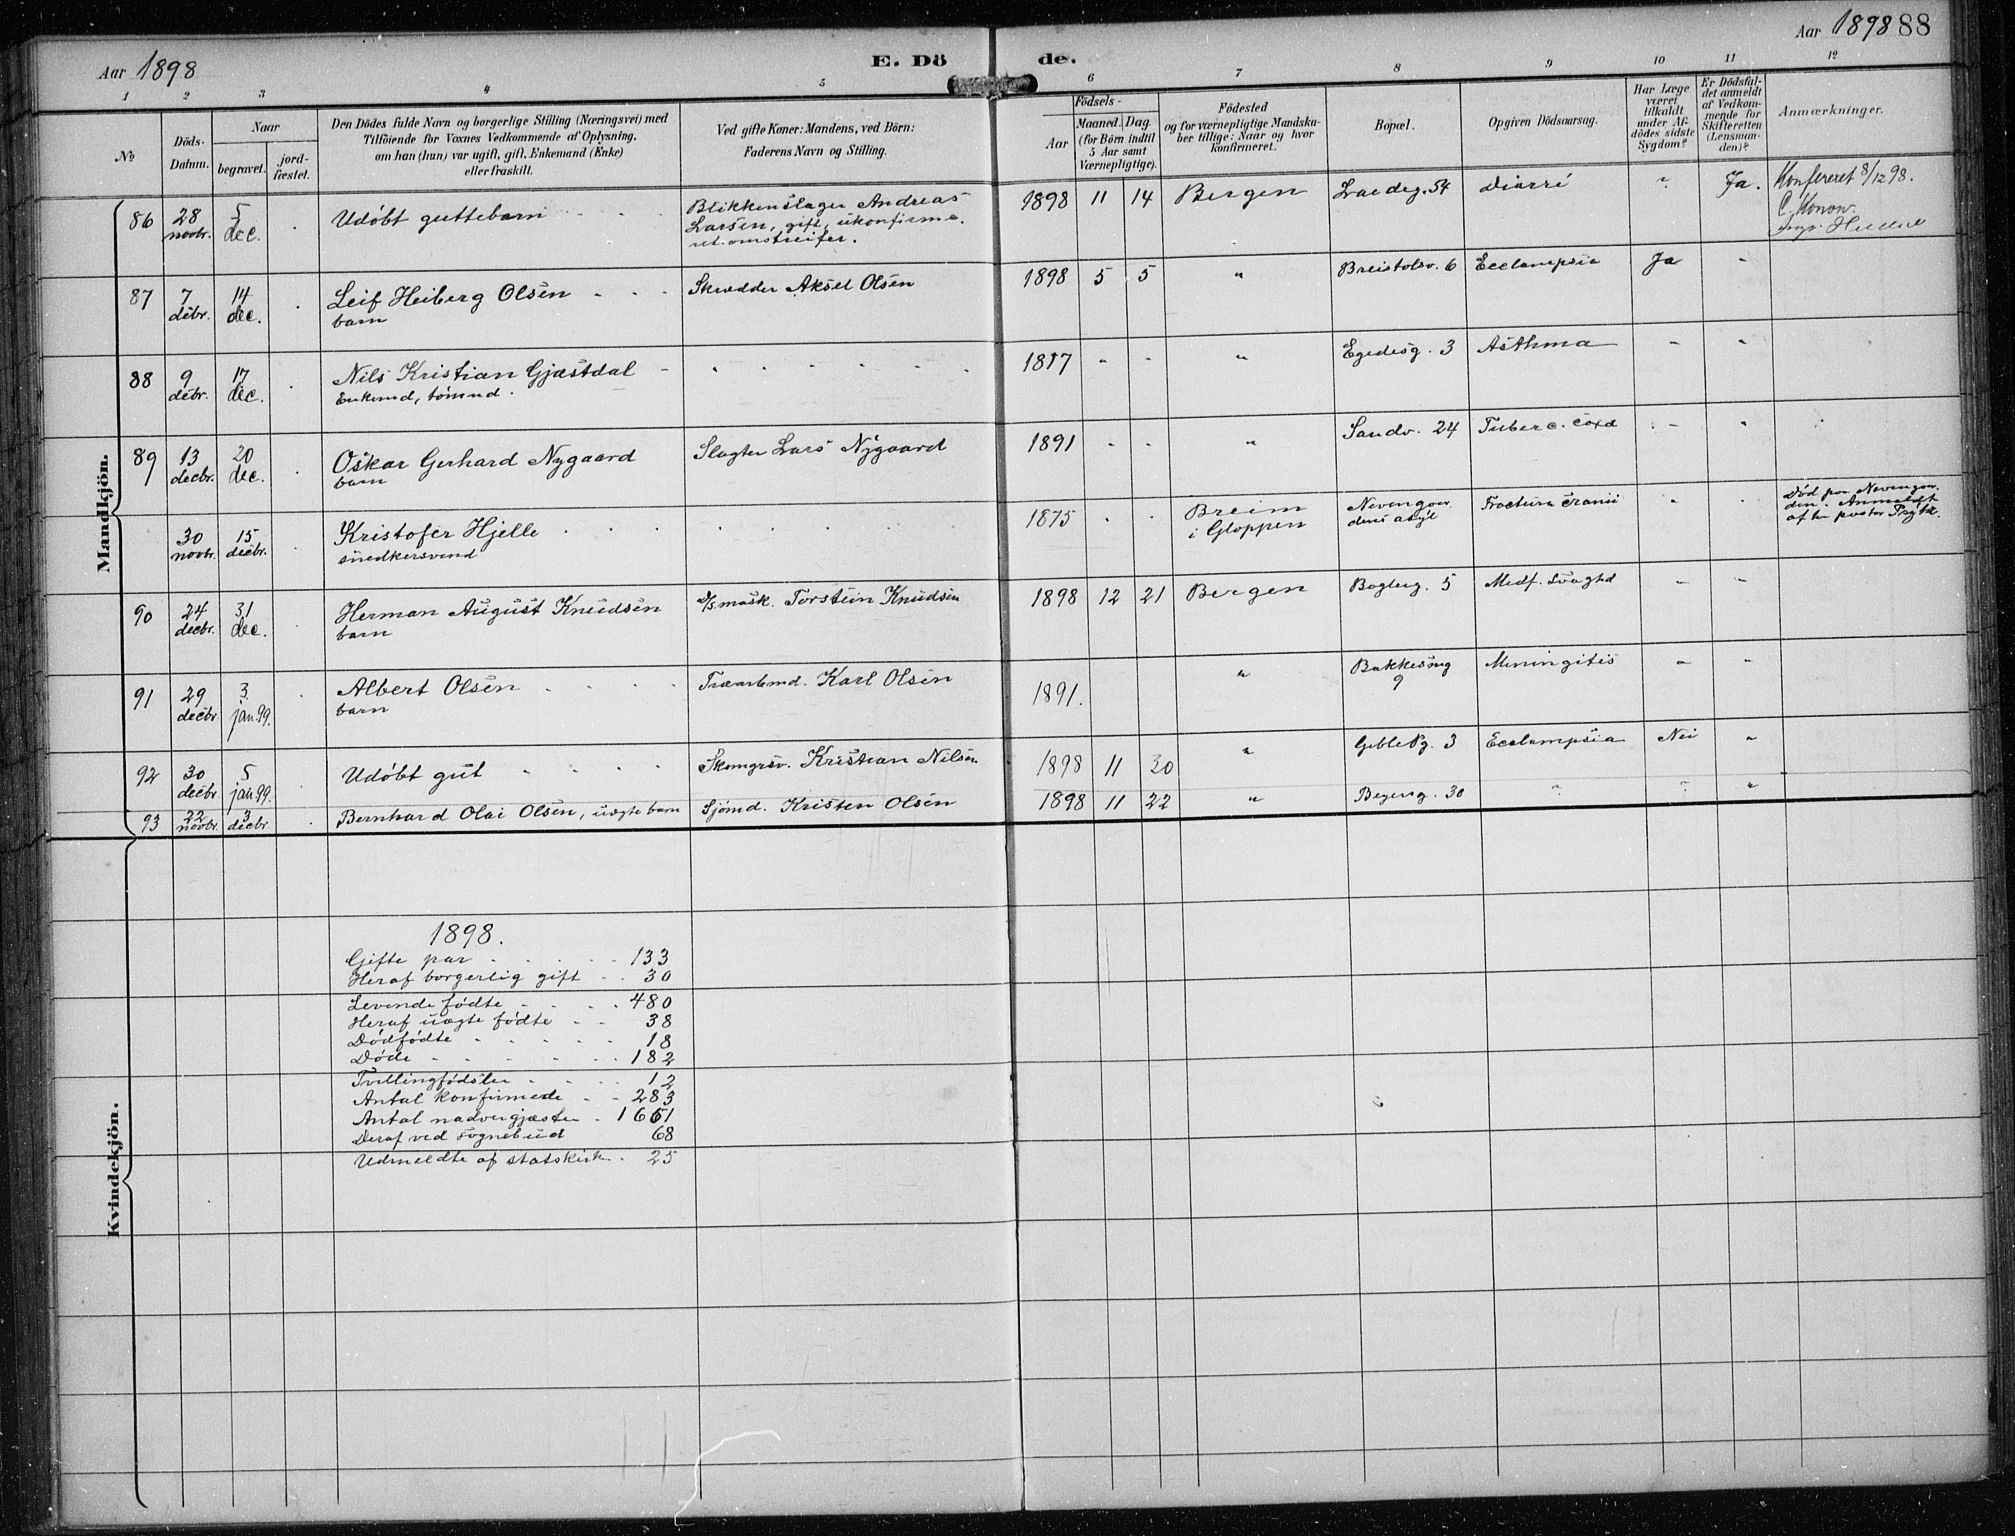 Aar 1898
E. Dö
de.
Aar 1898 88
1 2 3 4 5 6 7 8 9 10 11 12
No
Döds-
Datum.
Naar
begravet.
jord-
fæstet.
Den Dödes fulde Navn og borgerlige Stilling (Næringsvei) med
Tilföiende for Voxnes Vedkommende af Oplysning,
om han (hun) var ugift, gift, Enkemand (Enke)
eller fraskilt.
Ved gifte Koner: Mandens, ved Börn:
Faderens Navn og Stilling.
Födsels-
Aar
Maaned. Dag.
(for Börn indtil
5 Aar samt
Værnepligtige).
Födested
og for værnepligtige Mandska-
ber tillige: Naar og hvor
konfirmeret.
Bopæl.
Opgiven Dödsaarsag.
Har Læge
været
tilkaldt
under Af-
dödes sidste
Sygdom?
Er Dödsfal-
det anmeldt
af Vedkom-
mende for
Skifteretten
(Lensman-
den)?
Anmærkninger.
Mandkjön.
86 28 novbr. 5 dec. Udøbt guttebarn Blikkenslager Andreas
Larsen, gift, ukonfirme-
ret omstreifer. 1898 11 14 Bergen Ladeg. 54 Diarré " Ja. Konfereret 8/12 98.
C. Konow.
87 7 debr. 14 dec. Leif Heiberg Olsen
barn Skrædder Aksel Olsen 1898 5 5 " Breistolsv. 6 Ecclampsia Ja "
88 9 debr. 17 dec. Nils Kristian Gjæstdal
Enkemd, tømmd. 1817 - - " Egedesg. 3 Asthma " "
89 13 decbr. 20 dec. Oskar Gerhard Nygaard
barn Slagter Lars Nygaard 1891 - - " Sandv. 24 Tuberc. coxa - "
30 novbr. 15 decbr. Kristofer Hjelle
snedkersvend 1875 Breim
i Gloppen Nevengaar
dens asyl Fractura cranii " " Død paa Nevengaar
den. Anmeldt
af
90 24 decbr. 31 dec. Herman August Knudsen
barn D/S mask. Torstein Knudsen 1898 12 21 Bergen Bagerg. 5 Medf. svaghd " "
91 29 decbr. 3 jan. 99. Albert Olsen
barn Træarbmd. Karl Olsen 1891. " Bakkesmg
9 Meningitis " "
92 30 decbr. 5 jan. 99. Udøbt gut Skomgrsv. Kristian Nilsen 1898 11 30 " Geblepg. 3 Ecclampsia Nei "
93 22 novbr. 3 decbr. Bernhard Olai Olsen, uægte barn Sjømd. Kristen Olsen 1898 11 22 " 30 " " "
Kvindekjön.
1898.
Gifte par 133
Heraf borgerlig gift 30
Levende fødte 480
Heraf uægte fødte 38
Dødfødte 18
Døde 182
Tvillingfødsler 12
Antal konfirmerede 283
Antal nadvergjæster 1661
Deraf ved sognebud 68
Udmeldte af statskirk. 25